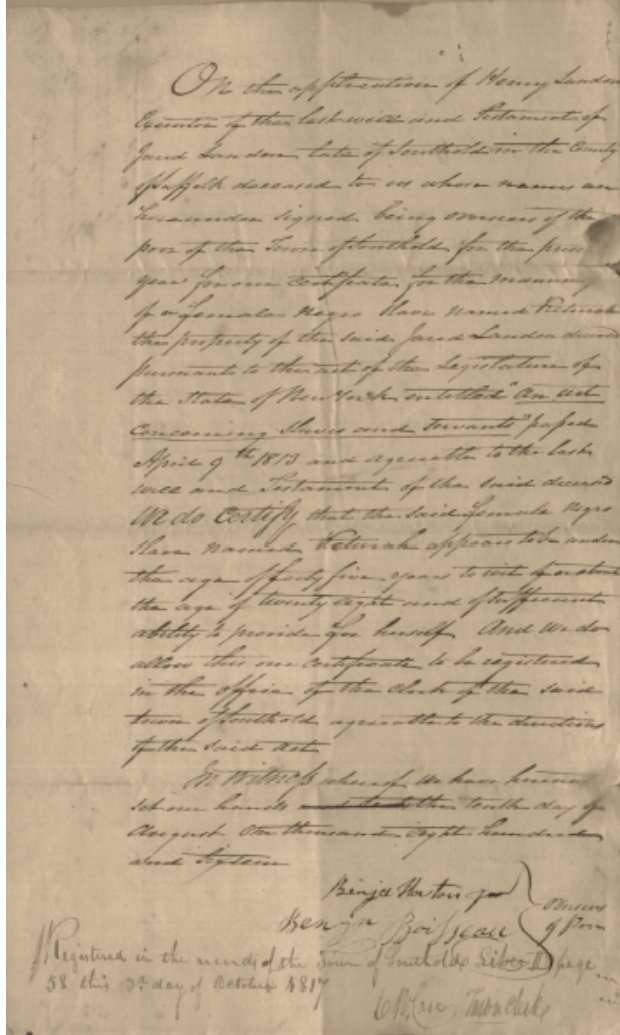 On the application of Henry Landon
Executor of the last will and Testament of
Jared Landon late of Southold in the County
of Suffolk deceased to us whose names are
hereunder signed being overseers of the
poor of the Town of Southold for the present
year for our certificate for the manum
of a female Negro Slave named Keturah
the property of the said Jared Landon deceased
pursuant to the act of the Legislature of
the State of New York entitled "An act
concerning Slaves and Servants" passed
April 9th 1813 and agreeable to the last
will and Testament of the said deceased
We do certify that the said female Negro
Slave named Keturah appears to be under
the age of forty five years to wit of about
the age of twenty eight and of sufficient
ability to provide for herself And we do
allow this our certificate to be registered
in the office of the clerk of the said
town of Southold agreeable to the directions
of the said act
In Witness whereof We have hereunto
set our hands this tenth day of
August One thousand eight hundred
and sixteen
Benja Horton Jur
Benjn Boisseau
Overseers
of Poor
Registered in the records of the Town of Southold Liber D page
58 this 3d day of October 1817
Town Clerk